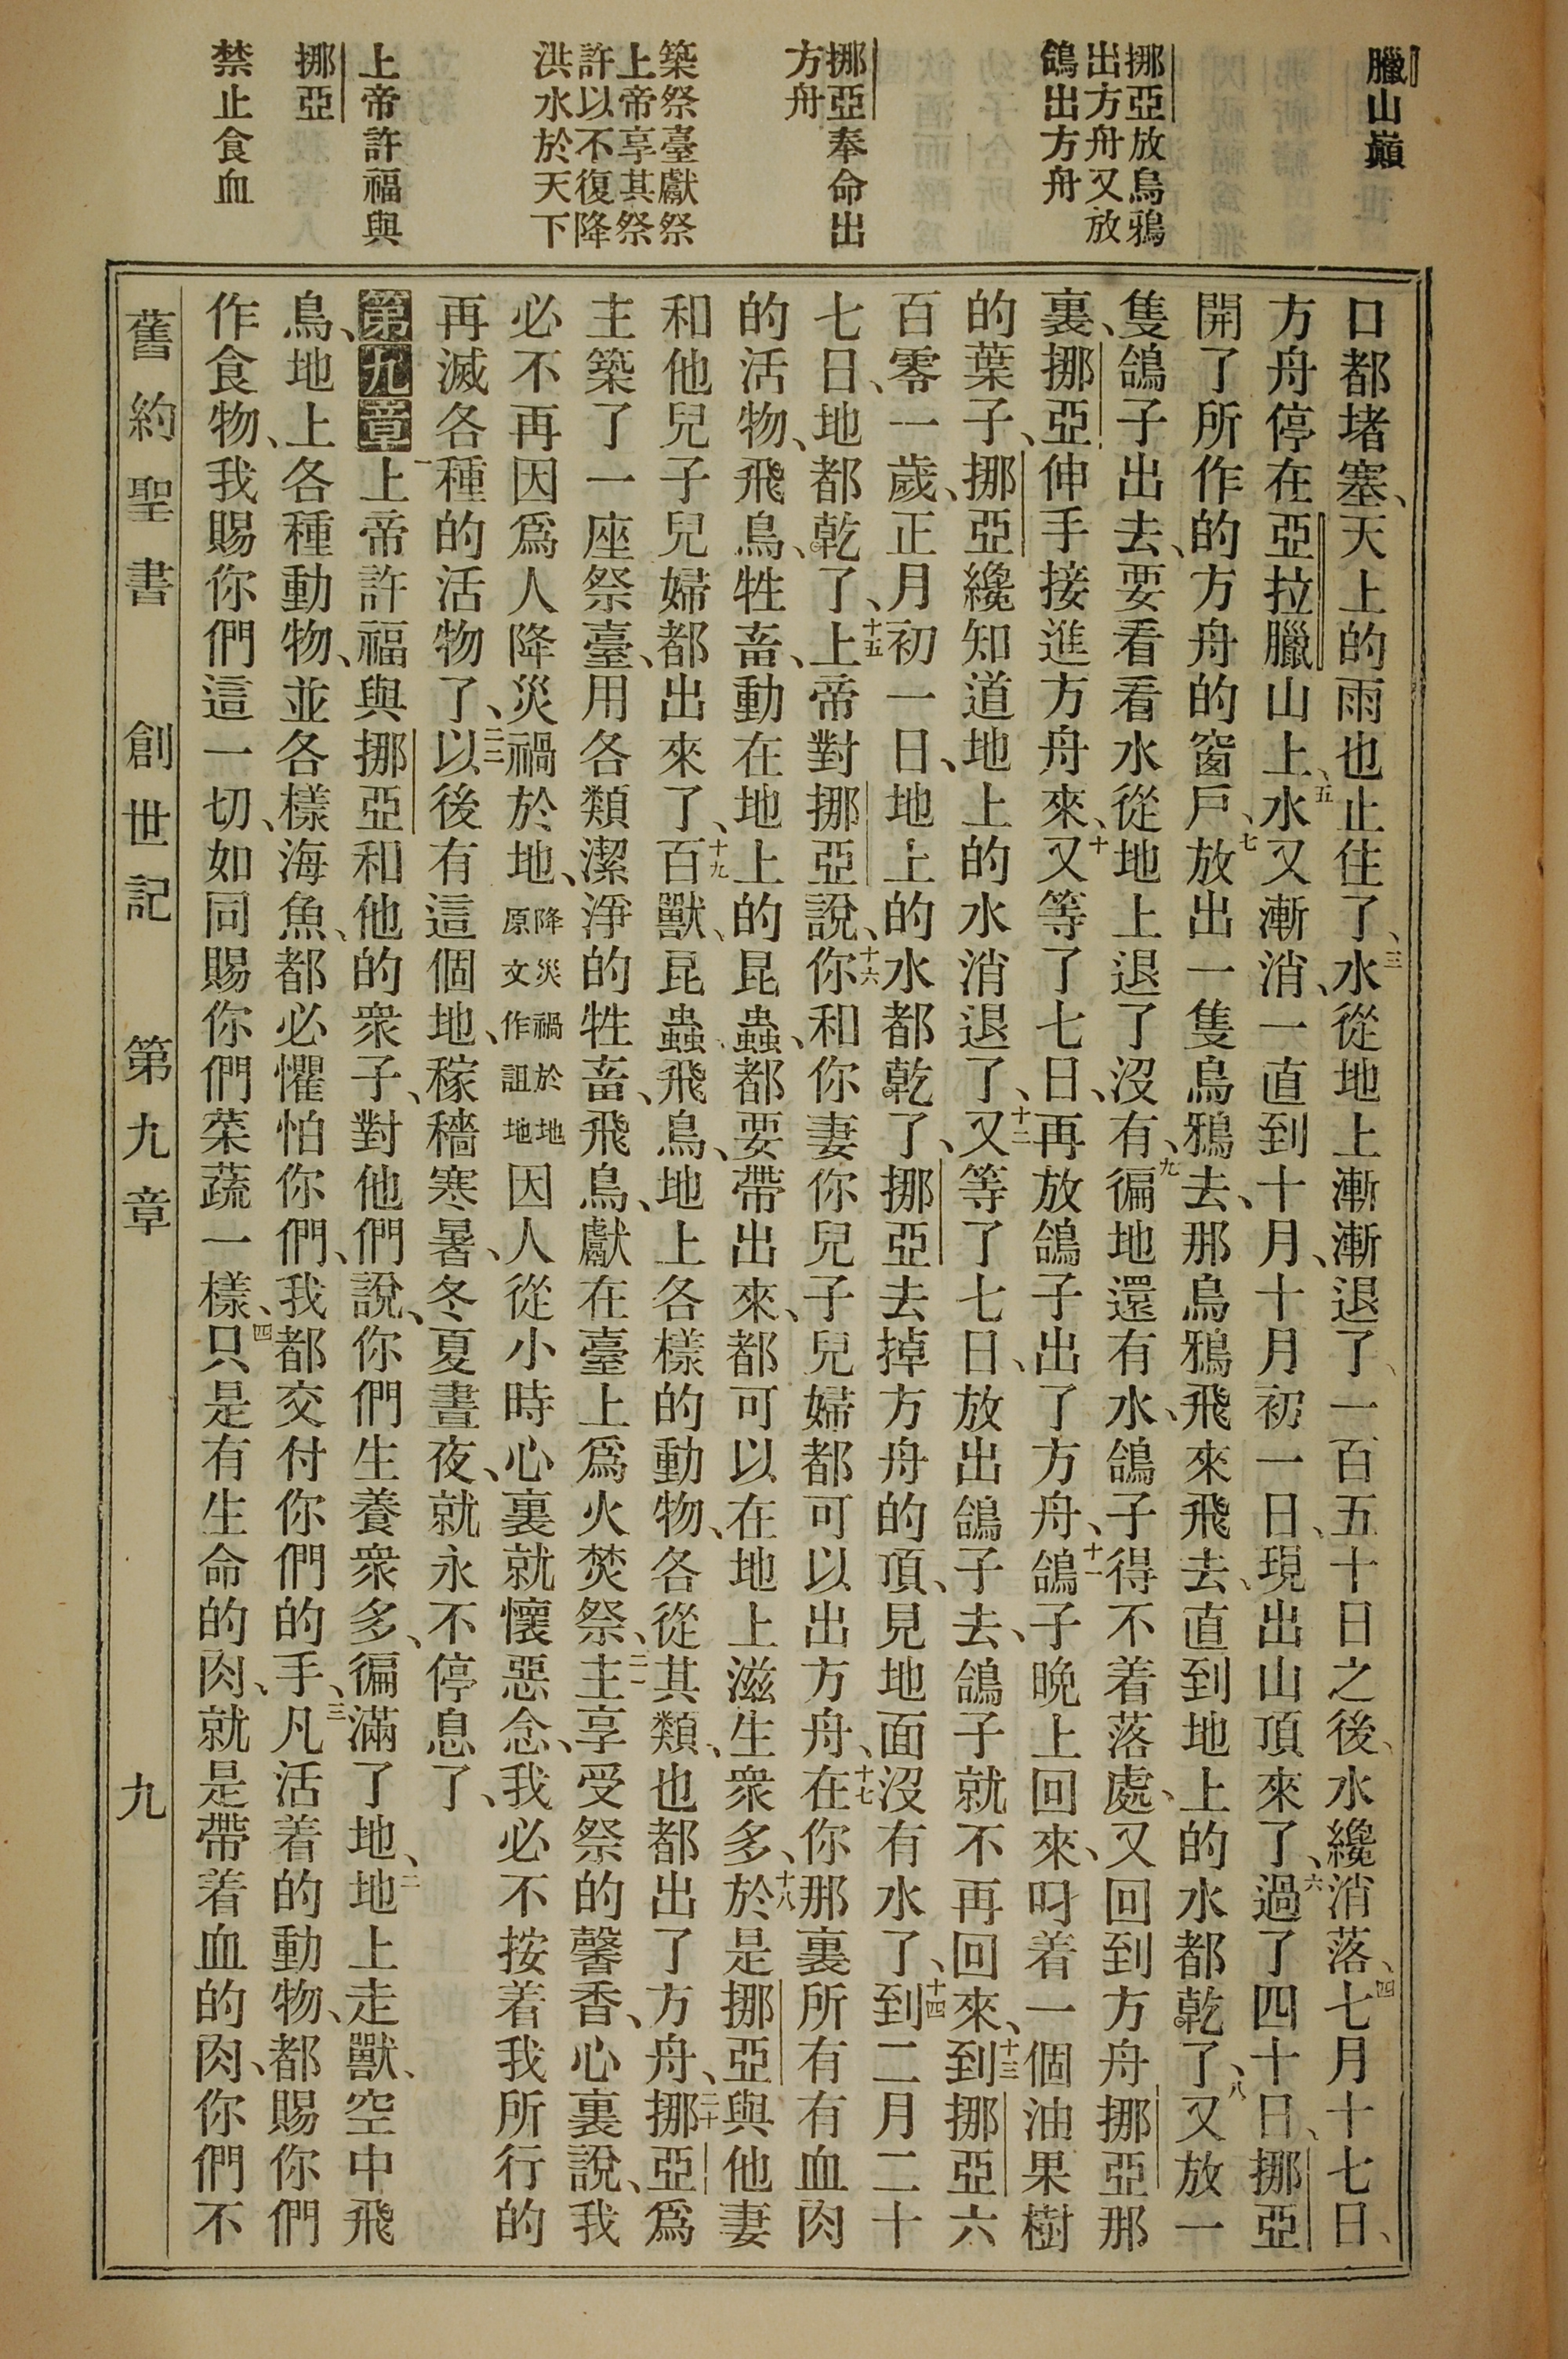 臘山巔
挪亞放烏鴉
出方舟又放
鴿出方舟
挪亞奉命出
方舟
築祭臺獻祭
上帝享其祭
許以不復降
洪水於天下
上帝許福與
挪亞
禁止食血
口都堵塞、天上的雨也止住了、三水從地上漸漸退了、一百五十日之後、水纔消落、四七月十七日、
方舟停在亞拉臘山上、五水又漸消、一直到十月、十月初一日、現出山頂來了、六過了四十日、挪亞
開了所作的方舟的窗戶、七放出一隻烏鴉去、那烏鴉飛來飛去、直到地上的水都乾了、八又放一
隻鴿子出去、要看看水從地上退了沒有、九徧地還有水、鴿子得不着落處、又回到方舟挪亞那
裏、挪亞伸手接進方舟來、十又等了七日、再放鴿子出了方舟、十一鴿子晚上回來、叼着一個油果樹
的葉子、挪亞纔知道地上的水消退了、十二又等了七日、放出鴿子去、鴿子就不再回來、十三到挪亞六
百零一歲、正月初一日、地上的水都乾了、挪亞去掉方舟的頂、見地面沒有水了、十四到二月二十
七日、地都乾了、十五上帝對挪亞說、十六你和你妻你兒子兒婦都可以出方舟、十七在你那裏所有有血肉
的活物、飛鳥、牲畜、動在地上的昆蟲、都要帶出來、都可以在地上滋生衆多、十八於是挪亞與他妻
和他兒子兒婦都出來了、十九百獸、昆蟲飛鳥、地上各樣的動物、各從其類、也都出了方舟、二十挪亞爲
主築了一座祭臺、用各類潔淨的牲畜、飛鳥、獻在臺上爲火焚祭、二一主享受祭的馨香、心裏說、我
必不再因爲人降災禍於地、降災禍於地原文作詛地因人從小時心裏就懷惡念、我必不按着我所行的
再滅各種的活物了、二二以後有這個地、稼穡寒暑、冬夏晝夜、就永不停息了、
第九章一上帝許福與挪亞和他的衆子、對他們說、你們生養衆多、徧滿了地、二地上走獸、空中飛
鳥、地上各種動物、並各樣海魚、都必懼怕你們、我都交付你們的手、三凡活着的動物、都賜你們
作食物、我賜你們這一切、如同賜你們菜蔬一樣、四只是有生命的肉、就是帶着血的肉、你們不
舊約聖書 創世記 第九章 九